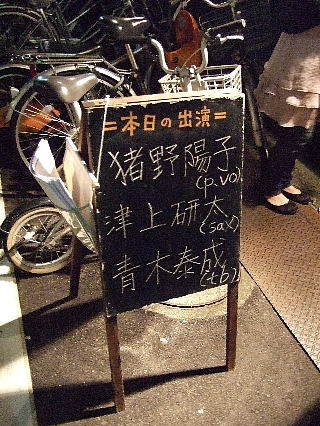 =本日の出演=
猪野陽子
(p.vo)
津上研太
(sax)
青木泰成
(tb)